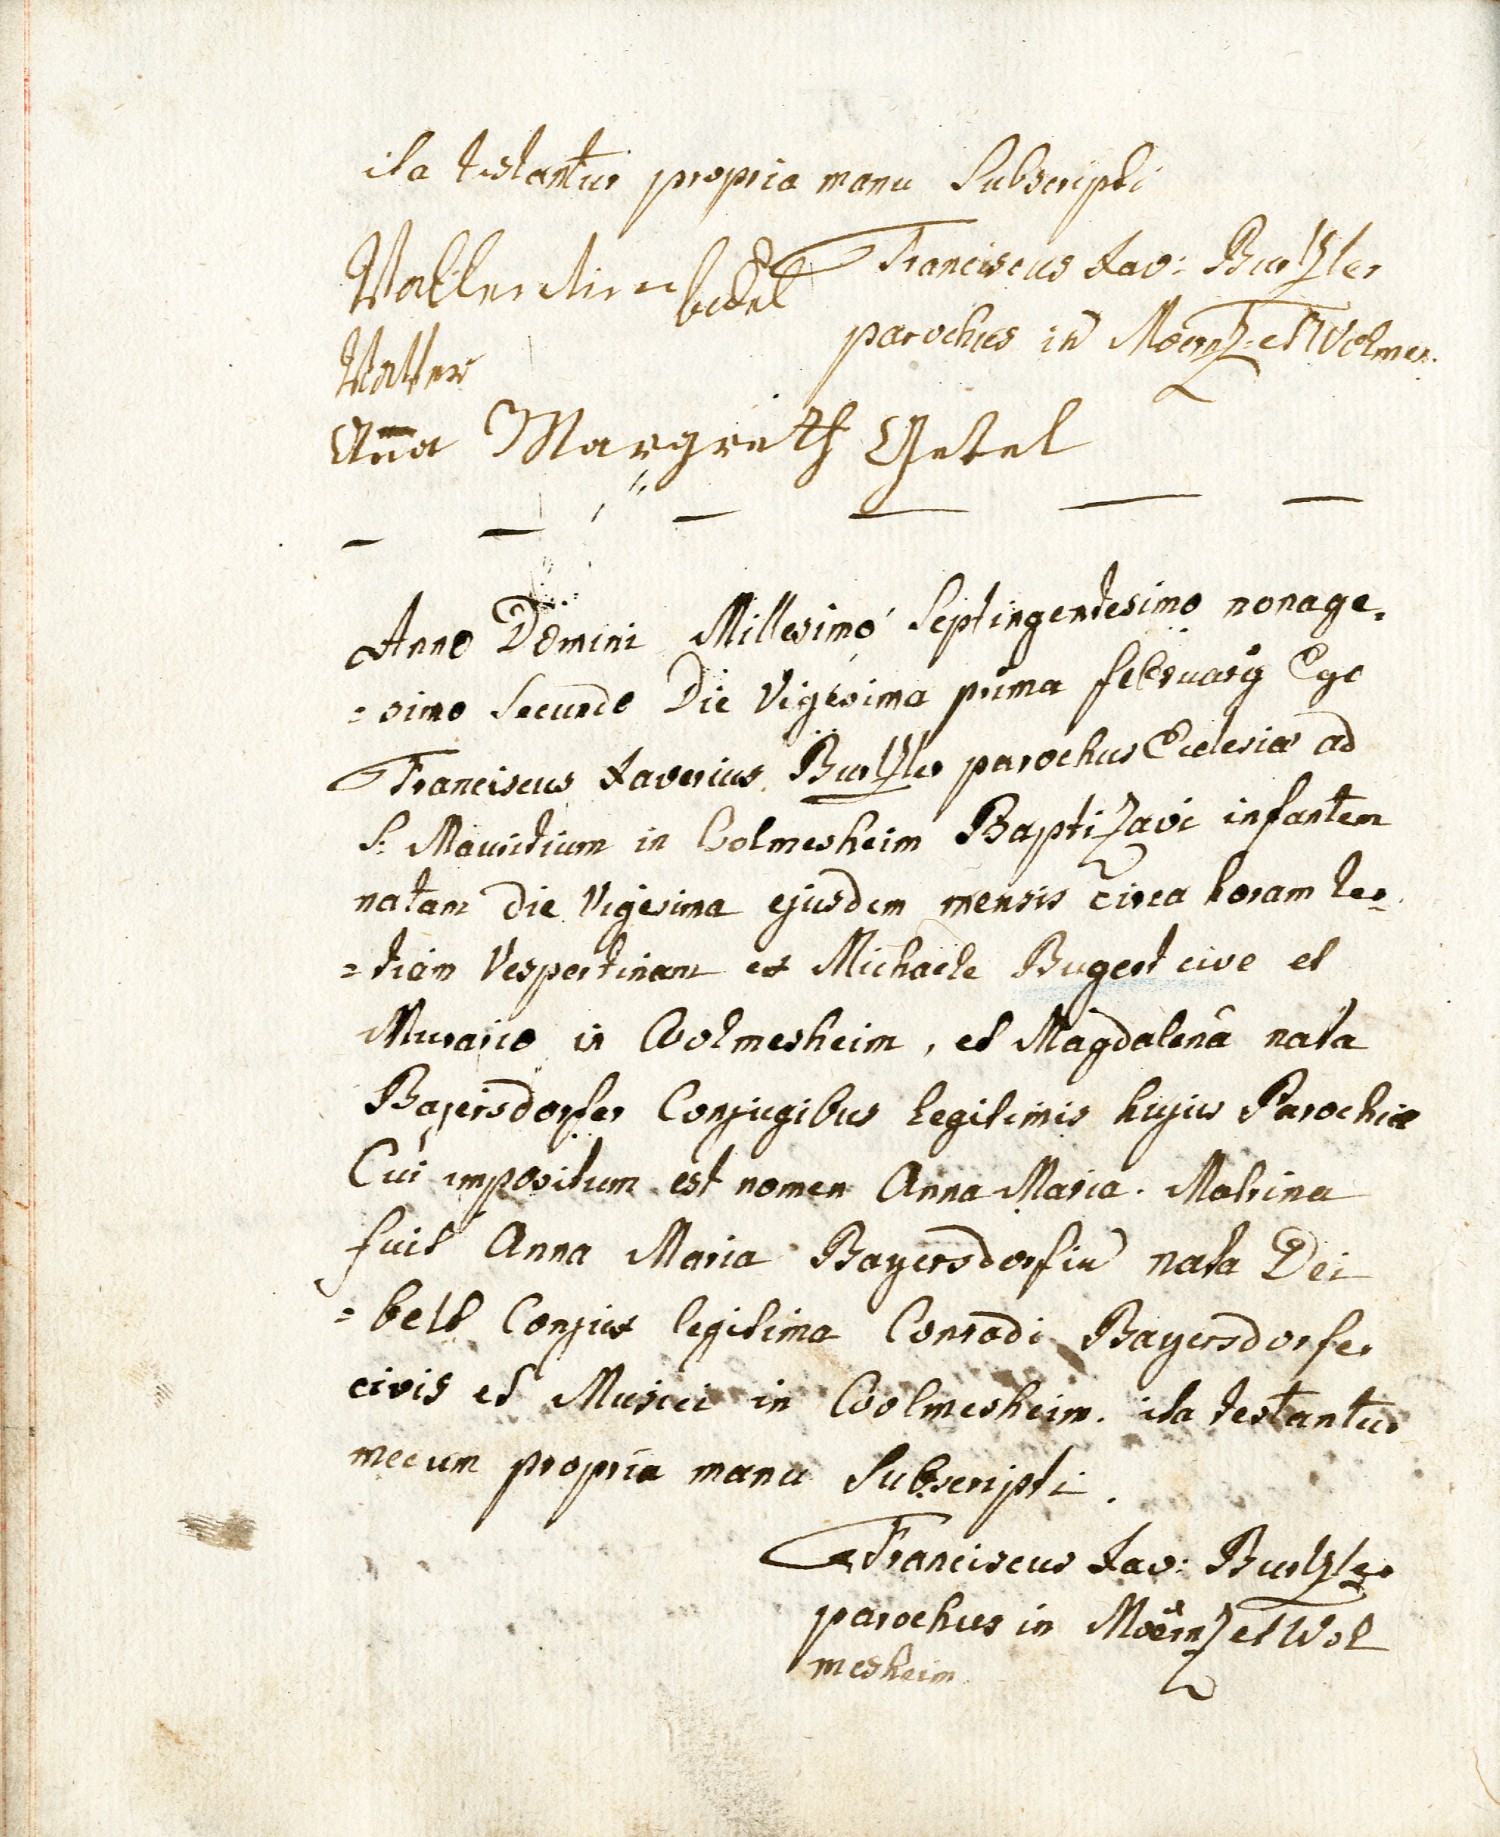 ita testantur propria manu Subscripti
Vallendin bettel Franciscus Xav: Burtzler
parochus in Moerz: et Wolmes.
Vatter
Anna Margreth Getel
Anno Domini Millesimo Septingentesimo nonage,
= simo Secundo Die Vigesima prima februarÿ Ego
Franciscus Xaverius Burtzler parochus Ecclesiæ ad
S: Mauritium in Wolmesheim Baptizavi infantem
natam die Vigesima ejusdem mensis circa horam ter-
= tiam Vespertinam ex Michaele Bugert cive et
Murario in Wolmesheim, et Magdalenâ nata
Bayersdorfer Conjugibus legitimis hujus Parochiæ
Cui impositum est nomen Anna Maria. Matrina
fuit Anna Maria Bayersdorfin nata Dei
= belt Conjux legitima Conradi Bayersdorfer
civis et Musici in Wolmesheim. ita testantur
mecum propria manu Subscripti.
Franciscus Xav: Burtzler
parochus in Moerz et Wol
mesheim